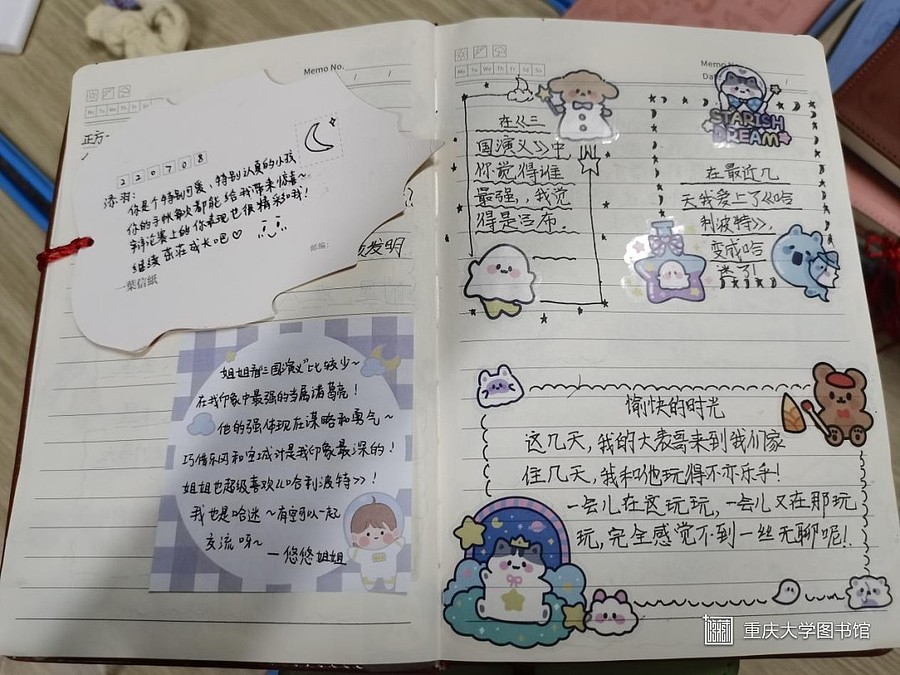 Memo No.
正方
220708
你是个特别可爱、特别认真的小孩
你的手帐每次都能给我带来惊喜~
辩论赛上的你表现也很精彩哦!
继续茁壮成长吧♡
邮编:
一葉信紙
发明
姐姐看"三国演义"比较少~
在我印象中最强的当属诸葛亮!
他的强体现在谋略和勇气~
巧借东风和空城计是我印象最深的!
姐姐也超级喜欢《哈利波特》!
我也是哈迷~有空可以一起
交流呀~
—悠悠姐姐
Mo Tu We Th Fr Sa Su
Memo No.
在《三
国演义》中
你觉得谁
最强,我觉
得是吕布.
STARISH
DREAM
在最近几
天我爱上了《哈
利波特》,
变成哈
迷了!
愉快的时光
这几天,我的大表哥来到我们家
住几天,我和他玩得不亦乐乎!
一会儿在这玩玩,一会儿又在那玩
玩,完全感觉不到一丝无聊呢!
重庆大学图书馆